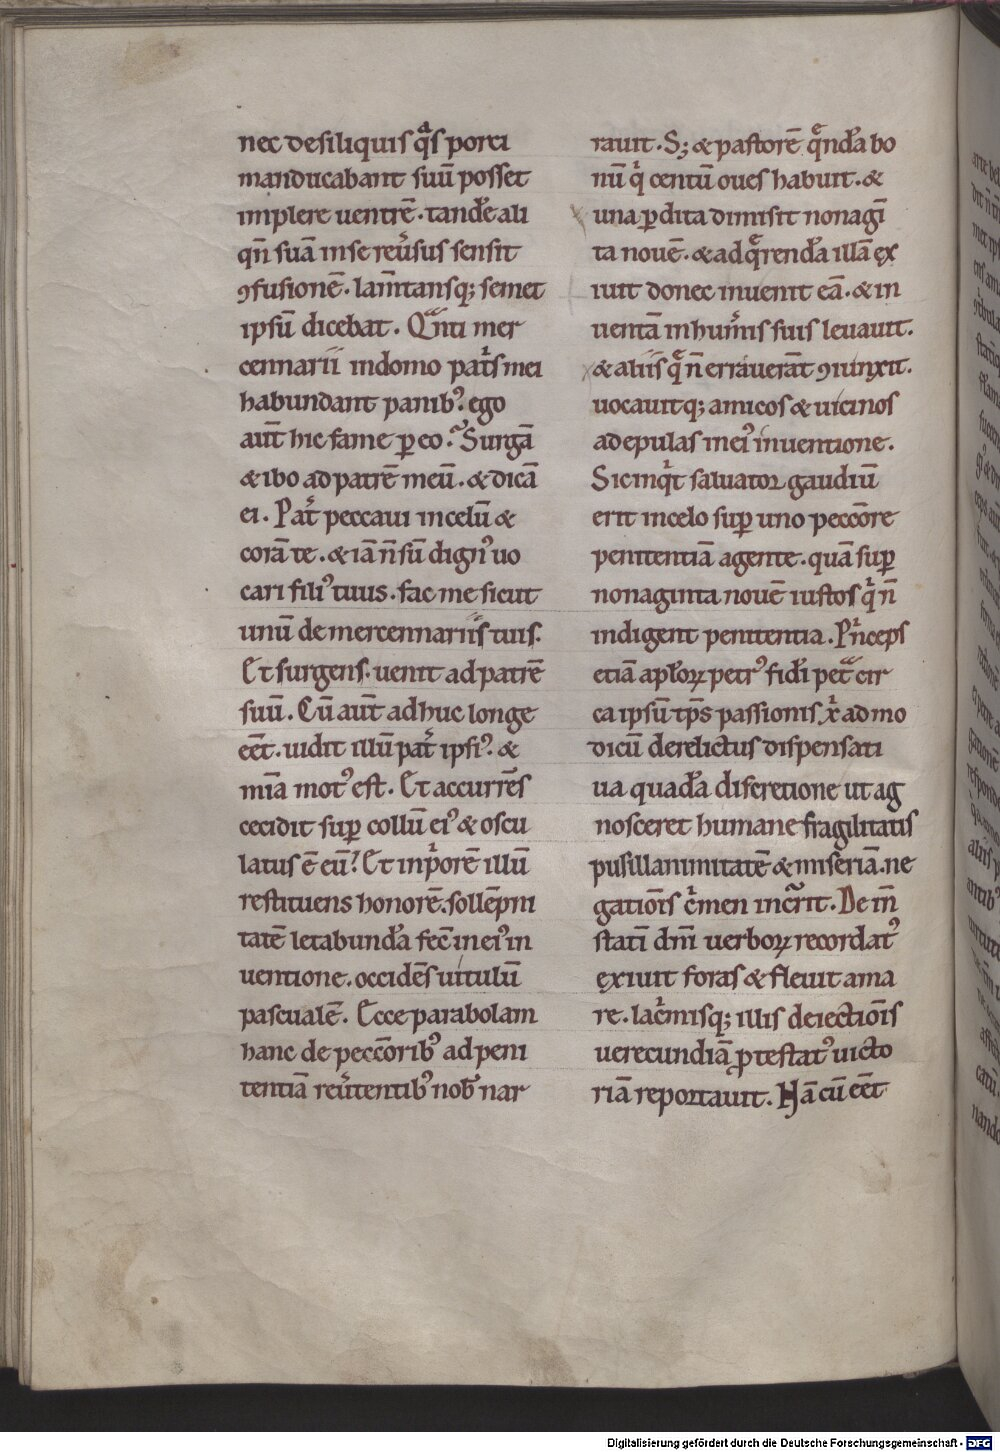 nec desiliquis qͣs porci
manducabant suū posset
implere uentrē. tandē ali
qn̄ suā inse reu̓sus sensit
ꝯfusionē. lam̄tansq; semet
ipsū dicebat. Qͣnti mer
cennarii indomo pat̓s mei
habundant panib᾿. ego
aut̄ hic fame ꝑeo. Surgā
& ibo ad patrē meū. & dicā
ei. Pat̓ peccaui incelū &
corā te. & iā n̄ sū dign᾿ uo
cari fili᾿ tuus. fac me sicut
unū de mercennariis tuis.
Et surgens. uenit ad patrē
suū. Cū aut̄ adhuc longe
eēt. uidit illū pat̓ ipsi᾿. &
mīa mot᾿ est. Et accurrēs
cecidit suꝑ collū ei᾿ & oscu
latus ē eū. Et inp̓orē illū
restituens honorē. sollēpni
tatē letabunda fec̄ inei᾿ in
uentione. occidēs uitulū
pascualē. Ecce parabolam
hanc de peccōrib᾿ ad peni
tentiā reu̓tentib᾿ nob̄ nar
rauit. S; & pastorē qͤndā bo
nū qͥ centū oues habuit. &
una ꝑdita dimisit nonagī
ta nouē. & adqͤrendā illā ex
iuit donec inuenit eā. & in
uentā inhum̓is suis leuauit.
& aliis qͤ n̄ errauerāt ꝯiunxit.
uocauitq; amicos & uicinos
ad epulas inei᾿ inuentione.
Sic inqͥt saluator gaudiū
erit incelo suꝑ uno peccōre
penitentiā agente. quā suꝑ
nonaginta nouē iustos qͥ n̄
indigent penitentia. Pͥnceps
etiā aplōꝝ petr᾿ fidī petͣ cir
ca ipsū tp̄s passionis xͥ ad mo
dicū derelictus dispensati
ua quadā discretione ut ag
nosceret humane fragilitatis
pusillanimitatē & miseriā. ne
gatiōis cͥmen incͣrit. De in̄
statī dn̄i uerboꝝ recordat᾿
exiuit foras & fleuit ama
re. lacͥmisq; illis deiectiōis
uerecundiā ꝓtestat᾿ uicto
riā reportauit. Hā cū eēt
Digitalisierung gefördert durch die Deutsche Forschungsgemeinschaft - DFG